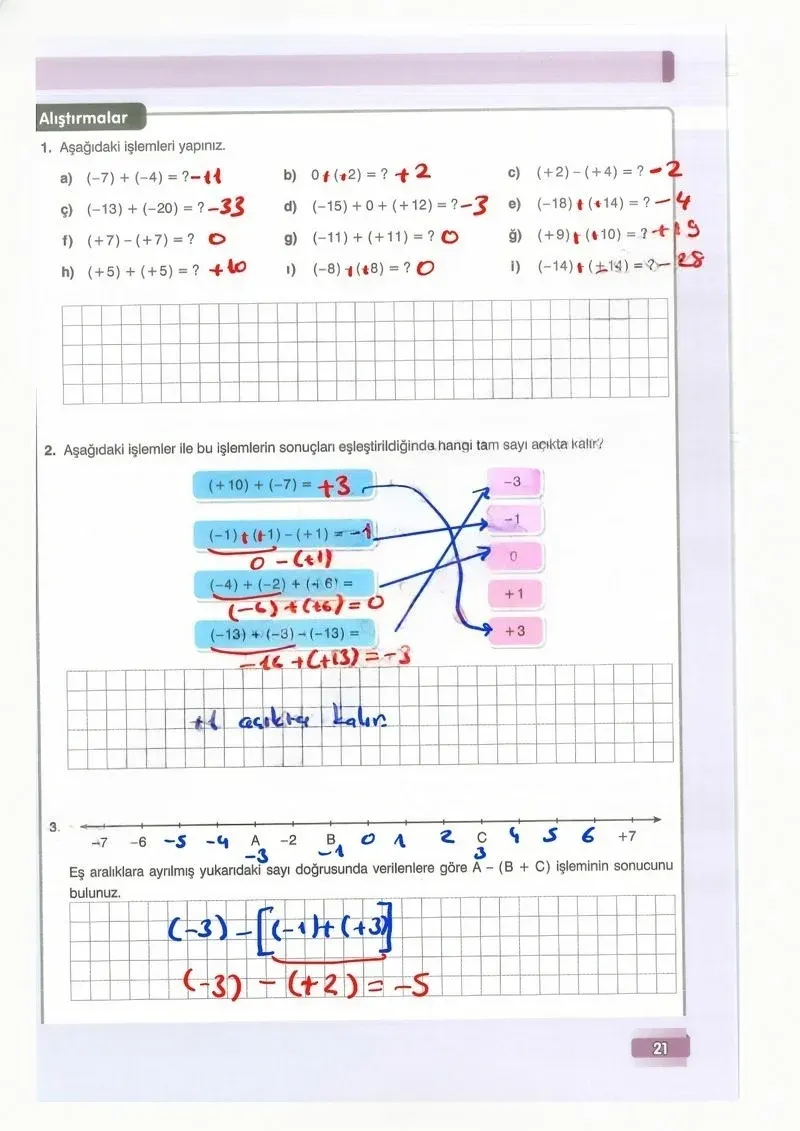 Alıştırmalar
1. Aşağıdaki işlemleri yapınız.
a) (−7) + (−4) = ? −11 b) 0 + (+2) = ? +2 c) (+2) − (+4) = ? −2
ç) (−13) + (−20) = ? −33 d) (−15) + 0 + (+12) = ? −3 e) (−18) + (+14) = ? −4
f) (+7) − (+7) = ? 0 g) (−11) + (+11) = ? 0 ğ) (+9) + (+10) = ? +19
h) (+5) + (+5) = ? +10 ı) (−8) + (+8) = ? 0 i) (−14) + (−14) = ? −28
2. Aşağıdaki işlemler ile bu işlemlerin sonuçları eşleştirildiğinde hangi tam sayı açıkta kalır?
(+10) + (−7) = +3 −3
(−1) + (+1) − (+1) = −1 −1
0 − (+1)
(−4) + (−2) + (+6) = 0
(−6) + (+6) = 0 +1
(−13) + (−3) − (−13) = +3
−16 + (+13) = −3
+1 açıkta kalır.
3.
−7 −6 −5 −4 A −2 B 0 1 2 C 4 5 6 +7
−3 −1 3
Eş aralıklara ayrılmış yukarıdaki sayı doğrusunda verilenlere göre A − (B + C) işleminin sonucunu
bulunuz.
(−3) − [(−1) + (+3)]
(−3) − (+2) = −5
21